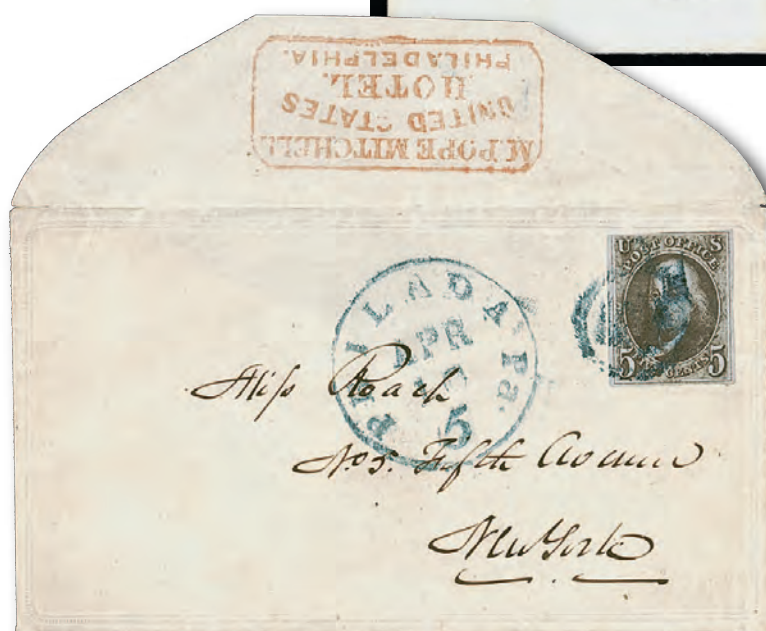 M. POPE MITCHELL
UNITED STATES
HOTEL
PHILADELPHIA.
U S
POST OFFICE
5 CENTS 5
PHILADA. Pa.
APR
5
Miss Roach
No 5. Fifth Avenue
New York